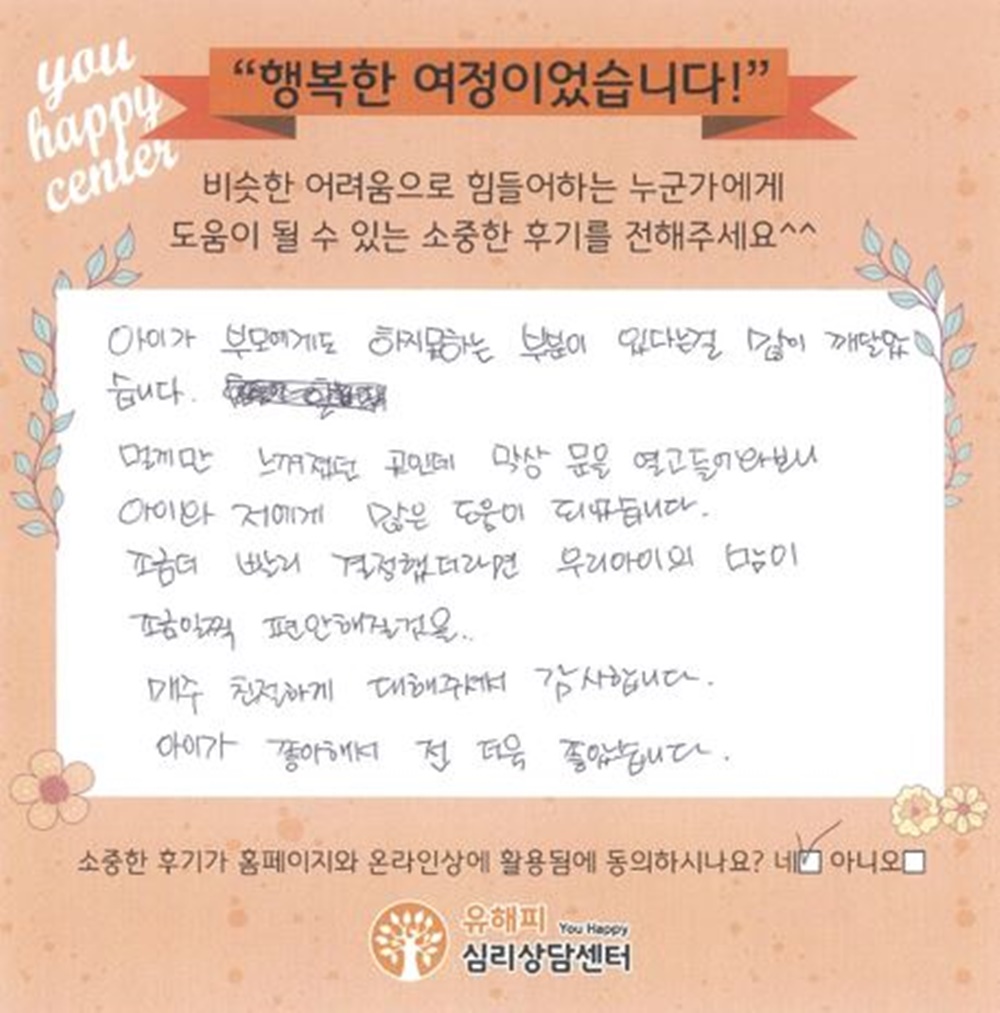 you
happy
center
“행복한 여정이었습니다!”
비슷한 어려움으로 힘들어하는 누군가에게
도움이 될 수 있는 소중한 후기를 전해주세요^^
아이가 부모에게도 하지못하는 부분이 있다는걸 많이 깨달았
습니다.
멀게만 느껴졌던 곳인데 막상 문을 열고들어와보니
아이와 저에게 많은 도움이 되었습니다.
조금더 빨리 결정했더라면 우리아이의 맘이
조금일찍 편안해질것을..
매주 친절하게 대해주셔서 감사합니다.
아이가 좋아해서 전 더욱 좋았습니다.
소중한 후기가 홈페이지와 온라인상에 활용됨에 동의하시나요? 네 아니오
유해피 You Happy
심리상담센터